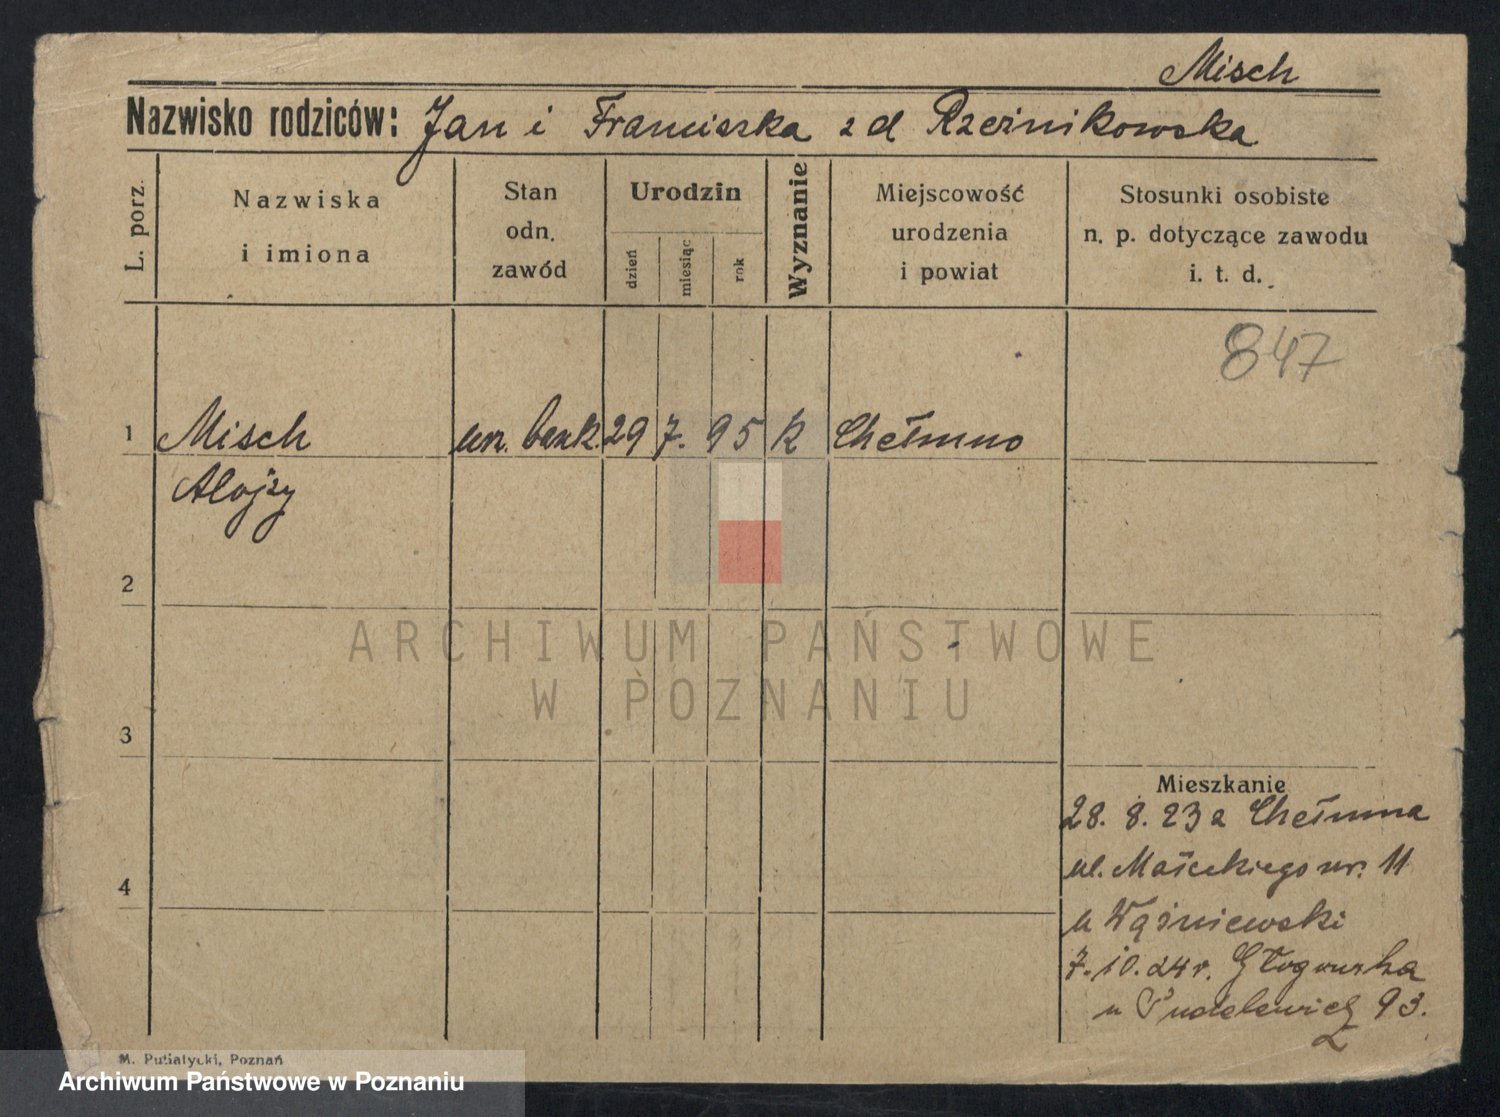 Misch
Nazwisko rodziców: Jan i Franciszka z d Rzeźnikowska
L. porz.
Nazwiska
i imiona
Stan
odn.
zawód
Urodzin
dzień
miesiąc
rok
Wyznanie
Miejscowość
urodzenia
i powiat
Stosunki osobiste
n. p. dotyczące zawodu
i. t. d.
847
1 Misch urz. bank. 29 7. 95 k Chełmno
Alojzy
2
ARCHIWUM PAŃSTWOWE
W POZNANIU
3
Mieszkanie
28. 8. 23 z Chełmna
ul. Małeckiego nr. 11
4
u Wąśniewski
7.10.24 r. Głogowska
u 93.
M. Putiatycki, Poznań
Archiwum Państwowe w Poznaniu